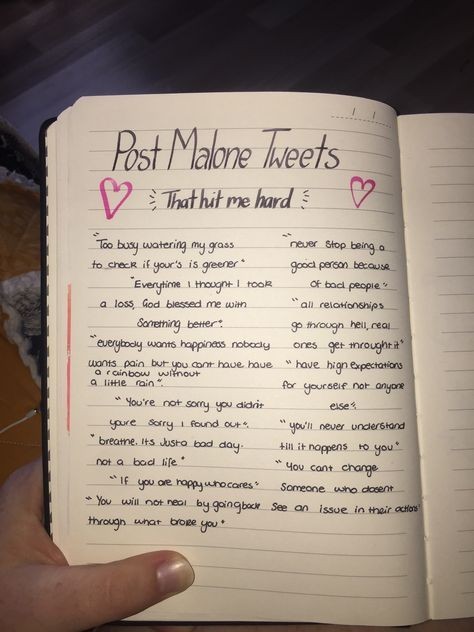 Post Malone Tweets
That hit me hard
"Too busy watering my grass
to check if your's is greener"
"Everytime I thought I took
a loss, God blessed me with
something better".
"everybody wants happiness nobody
wants pain but you cant have have
a rainbow without
a little rain".
"You're not sorry you didn't
you're sorry I found out".
"breathe. Its Just a bad day.
not a bad life"
"If you are happy who cares".
"You will not heal by going back
through what broke you"
"never stop being a
good person because
of bad people".
"all relationships
go through hell, real
ones get through it"
"have high expectations
for yourself not anyone
else".
"you'll never understand
till it happens to you"
"You cant change
someone who dosent
see an issue in their actions"